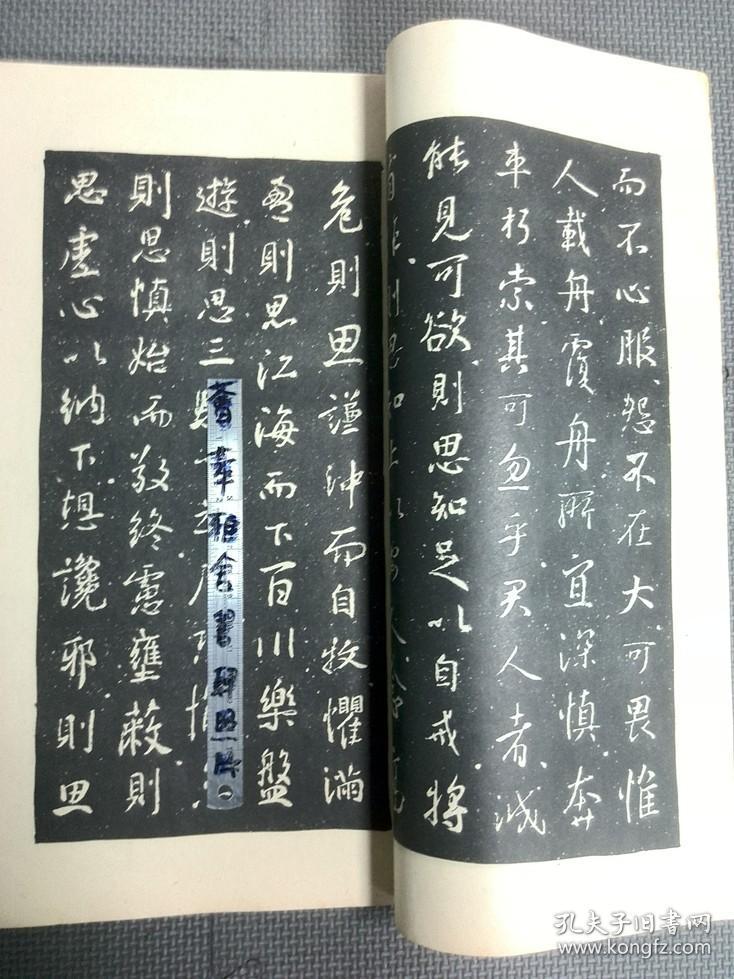 而不心服怨不在大可畏惟
人載舟覆舟所宜深慎奔
車朽索其可忽乎君人者誠
能見可欲則思知足以自戒將
則思知止以安人
危則思謹沖而自牧懼滿
則思江海而下百川樂盤
遊則思三
則思慎始而敬終慮壅蔽則
思虛心以納下想讒邪則思
華雅舍書照片
孔夫子旧书网
www.kongfz.com